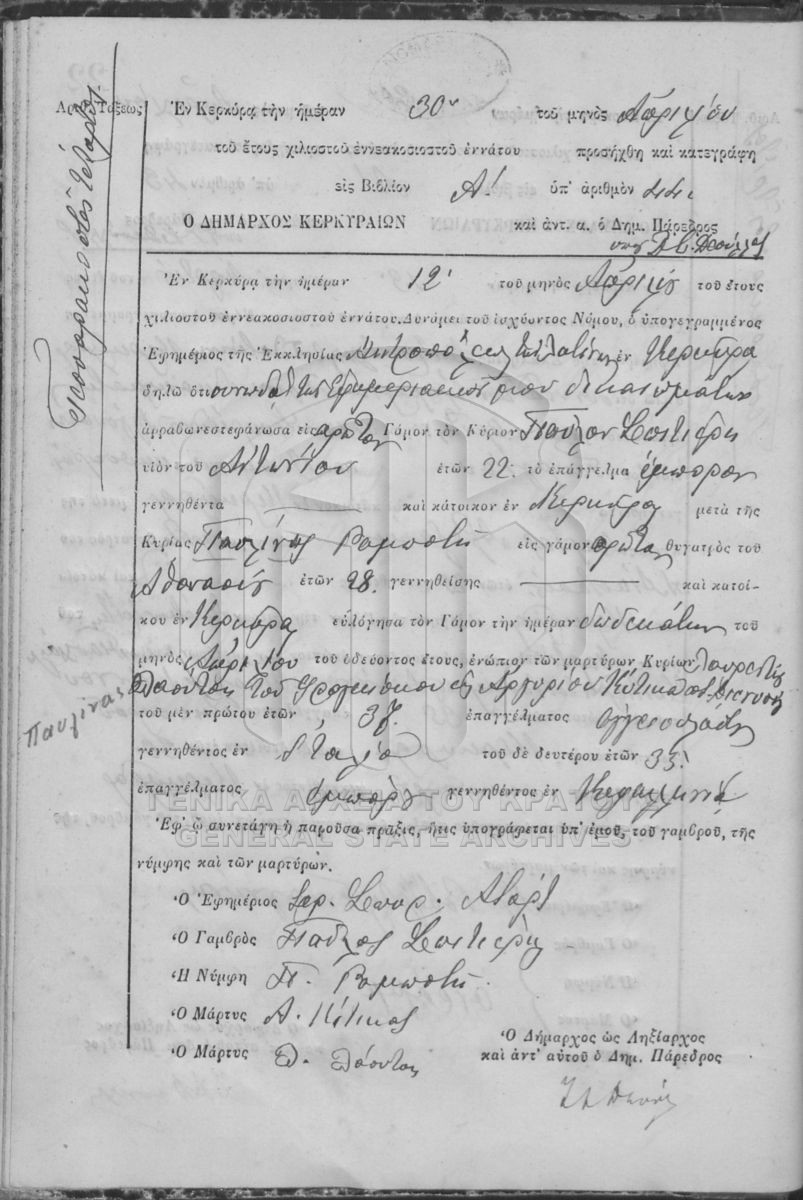 Αριθ. Τάξεως
Τεσσαρακοστὴ τετάρτη
Ἐν Κερκύρᾳ τὴν ἡμέραν 30ην τοῦ μηνὸς Ἀπριλίου
τοῦ ἔτους χιλιοστοῦ ἐννεακοσιοστοῦ ἐννάτου προσήχθη καὶ κατεγράφη
εἰς Βιβλίον Α! ὑπ' ἀριθμὸν 44.
Ο ΔΗΜΑΡΧΟΣ ΚΕΡΚΥΡΑΙΩΝ καὶ ἀντ. α. ὁ Δημ. Πάρεδρος
Ἐν Κερκύρᾳ τὴν ἡμέραν 12 τοῦ μηνὸς Ἀπριλίου τοῦ ἔτους
χιλιοστοῦ ἐννεακοσιοστοῦ ἐννάτου. Δυνάμει τοῦ ἰσχύοντος Νόμου, ὁ ὑπογεγραμμένος
Ἐφημέριος τῆς Ἐκκλησίας Μητροπόλεως τῶν Λατίνων ἐν Κερκύρᾳ
δηλῶ ὅτι συνεπείᾳ τῶν ἐφημεριακῶν μου δικαιωμάτων
ἀρραβωνεστεφάνωσα εἰς πρῶτον Γάμον τὸν Κύριον Παῦλον
υἱὸν τοῦ Ἀντωνίου ἐτῶν 22. τὸ ἐπάγγελμα ἔμπορον
γεννηθέντα καὶ κάτοικον ἐν Κερκύρᾳ μετὰ τῆς
Κυρίας Παυλίνας Ραμποτῆ εἰς γάμον πρῶτον θυγατρὸς τοῦ
Ἀθανασίου ἐτῶν 28. γεννηθείσης καὶ κατοί-
κου ἐν Κερκύρᾳ εὐλόγησα τὸν Γάμον τὴν ἡμέραν δωδεκάτην τοῦ
μηνὸς Ἀπριλίου τοῦ ὁδεύοντος ἔτους, ἐνώπιον τῶν μαρτύρων Κυρίων
τοῦ Φραγκίσκου καὶ Ἀργυρίου Κότικα τοῦ Διονυσίου
Παυλίνας
τοῦ μὲν πρώτου ἐτῶν 37. ἐπαγγέλματος ἀγγειοπλάστου
γεννηθέντος ἐν Ἰταλίᾳ τοῦ δὲ δευτέρου ἐτῶν 33.
ἐπαγγέλματος ἐμπόρου γεννηθέντος ἐν Κεφαλληνίᾳ
ΓΕΝΙΚΑ ΑΡΧΕΙΑ ΤΟΥ ΚΡΑΤΟΥΣ
GENERAL STATE ARCHIVES
Ἐφ' ᾧ συνετάγη ἡ παροῦσα πρᾶξις, ἥτις ὑπογράφεται ὑπ' ἐμοῦ, τοῦ γαμβροῦ, τῆς
νύμφης καὶ τῶν μαρτύρων.
Ὁ Ἐφημέριος
Ὁ Γαμβρὸς Παῦλος
Ἡ Νύμφη Π. Ραμποτῆ
Ὁ Μάρτυς Α. Κότικας
Ὁ Μάρτυς
Ὁ Δήμαρχος ὡς Ληξίαρχος
καὶ ἀντ' αὐτοῦ ὁ Δημ. Πάρεδρος